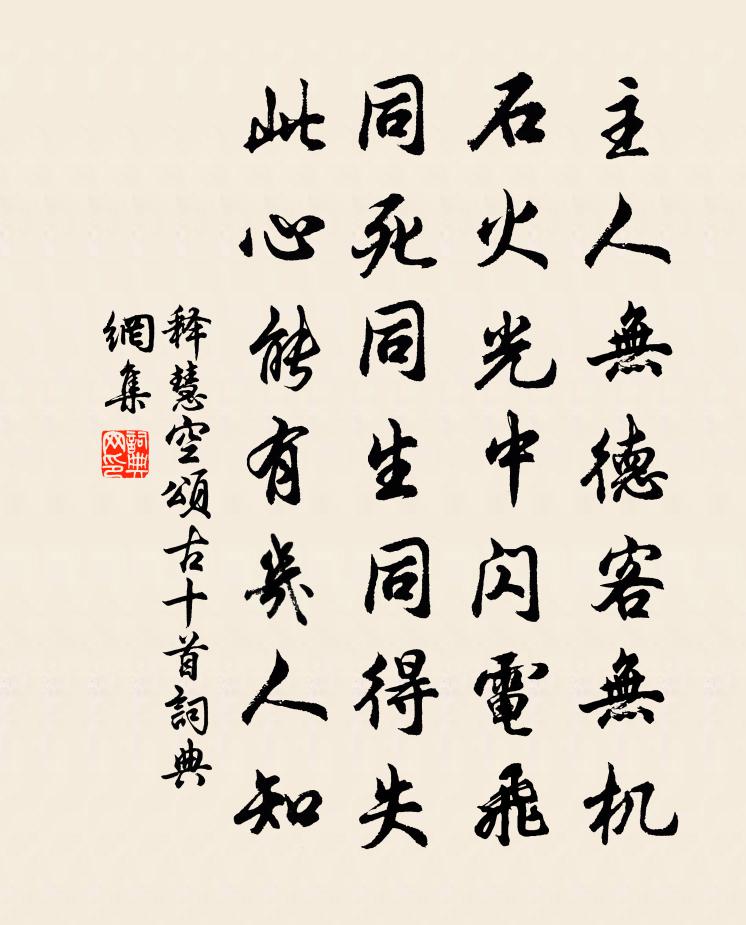 主人無德客無机
石火光中闪電飛
同死同生同得失
此心能有幾人知
释慧空頌古十首詞典
網集
詞典
网印